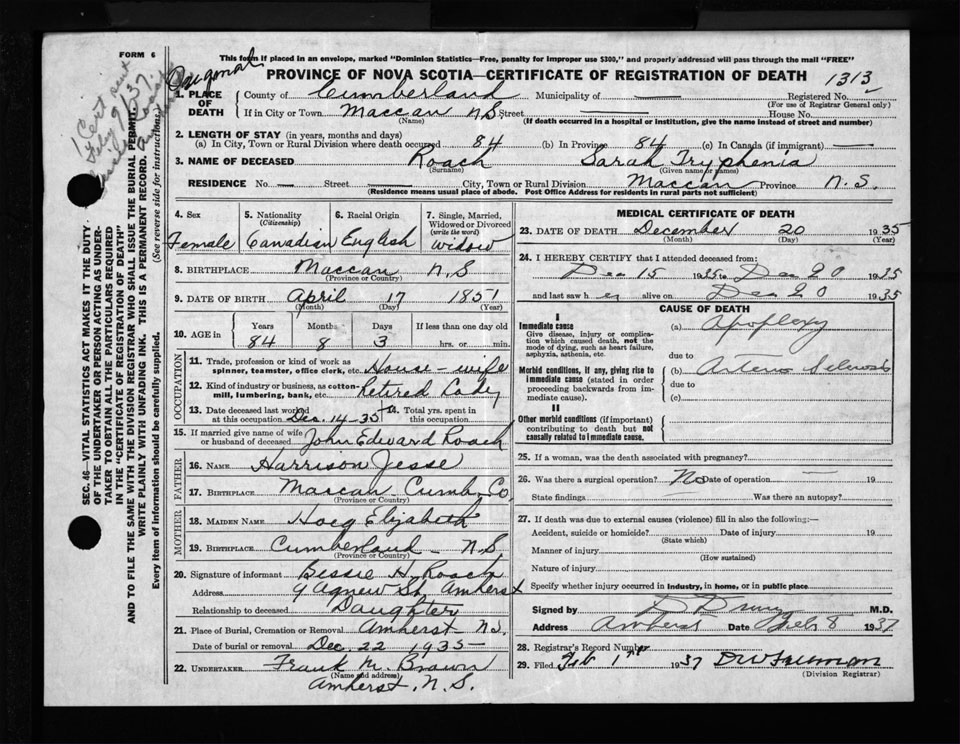 FORM 6
This form if placed in an envelope, marked "Dominion Statistics—Free, penalty for improper use $300," and properly addressed will pass through the mail "FREE"
PROVINCE OF NOVA SCOTIA—CERTIFICATE OF REGISTRATION OF DEATH 1313
Cert sent
Feb 9/37.
1. PLACE OF DEATH County of Cumberland Municipality of — Registered No.
(For use of Registrar General only)
If in City or Town Maccan N.S Street House No.
(Name) (If death occurred in a hospital or institution, give the name instead of street and number)
2. LENGTH OF STAY (in years, months and days)
(a) In City, Town or Rural Division where death occurred 84 (b) In Province 84 (c) In Canada (if immigrant) —
3. NAME OF DECEASED Roach Sarah Tryphenia
(Surname) (Given name or names)
RESIDENCE No. — Street — City, Town or Rural Division Maccan Province N.S.
(Residence means usual place of abode. Post Office Address for residents in rural parts not sufficient)
SEC. 46—VITAL STATISTICS ACT MAKES IT THE DUTY
OF THE UNDERTAKER OR PERSON ACTING AS UNDER-
TAKER TO OBTAIN ALL THE PARTICULARS REQUIRED
IN THE "CERTIFICATE OF REGISTRATION OF DEATH"
AND TO FILE THE SAME WITH THE DIVISION REGISTRAR WHO SHALL ISSUE THE BURIAL PERMIT
WRITE PLAINLY WITH UNFADING INK. THIS IS A PERMANENT RECORD.
Every item of information should be carefully supplied. (See reverse side for instructions)
4. Sex
Female
5. Nationality
(Citizenship)
Canadian
6. Racial Origin
English
7. Single, Married,
Widowed or Divorced
(write the word)
widow
8. BIRTHPLACE Maccan N.S
(Province or Country)
9. DATE OF BIRTH April 17 1851
(Month) (Day) (Year)
10. AGE in Years Months Days If less than one day old
84 8 3 hrs. or min.
OCCUPATION
11. Trade, profession or kind of work as
spinner, teamster, office clerk, etc. House-wife
12. Kind of industry or business, as cotton-
mill, lumbering, bank, etc. Retired Lady
13. Date deceased last worked
at this occupation Dec. 14-35
14. Total yrs. spent in
this occupation
15. If married give name of wife
or husband of deceased John Edward Roach
FATHER
16. NAME Harrison Jesse
17. BIRTHPLACE Maccan Cumb. Co.
(Province or Country)
MOTHER
18. MAIDEN NAME Hoeg Elizabeth
19. BIRTHPLACE Cumberland - N.S.
(Province or Country)
20. Signature of informant Bessie H. Roach
Address 9 Agnew St. Amherst
Relationship to deceased Daughter
21. Place of Burial, Cremation or Removal Amherst - N.S.
Date of burial or removal Dec. 22 1935
22. UNDERTAKER Frank M. Brown
(Name and address)
Amherst, N.S.
MEDICAL CERTIFICATE OF DEATH
23. DATE OF DEATH December 20 1935
(Month) (Day) (Year)
24. I HEREBY CERTIFY that I attended deceased from:
Dec 15 1935 to Dec 20 1935
and last saw h er alive on Dec 20 1935
CAUSE OF DEATH
I
Immediate cause
Give disease, injury or complica-
tion which caused death, not the
mode of dying, such as heart failure,
asphyxia, asthenia, etc.
(a) Apoplexy
due to
Morbid conditions, if any, giving rise to
immediate cause (stated in order
proceeding backwards from im-
mediate cause).
(b) Arterio Sclerosis
due to
(c)
II
Other morbid conditions (if important)
contributing to death but not
causally related to immediate cause.
25. If a woman, was the death associated with pregnancy?
26. Was there a surgical operation? No Date of operation — 19
State findings Was there an autopsy?
27. If death was due to external causes (violence) fill in also the following:—
Accident, suicide or homicide? Date of injury 19
(State which)
Manner of injury
(How sustained)
Nature of injury
Specify whether injury occurred in industry, in home, or in public place
Signed by M.D.
Address Amherst Date Feb 8 1937
28. Registrar's Record Number
29. Filed Feb 1937
(Division Registrar)